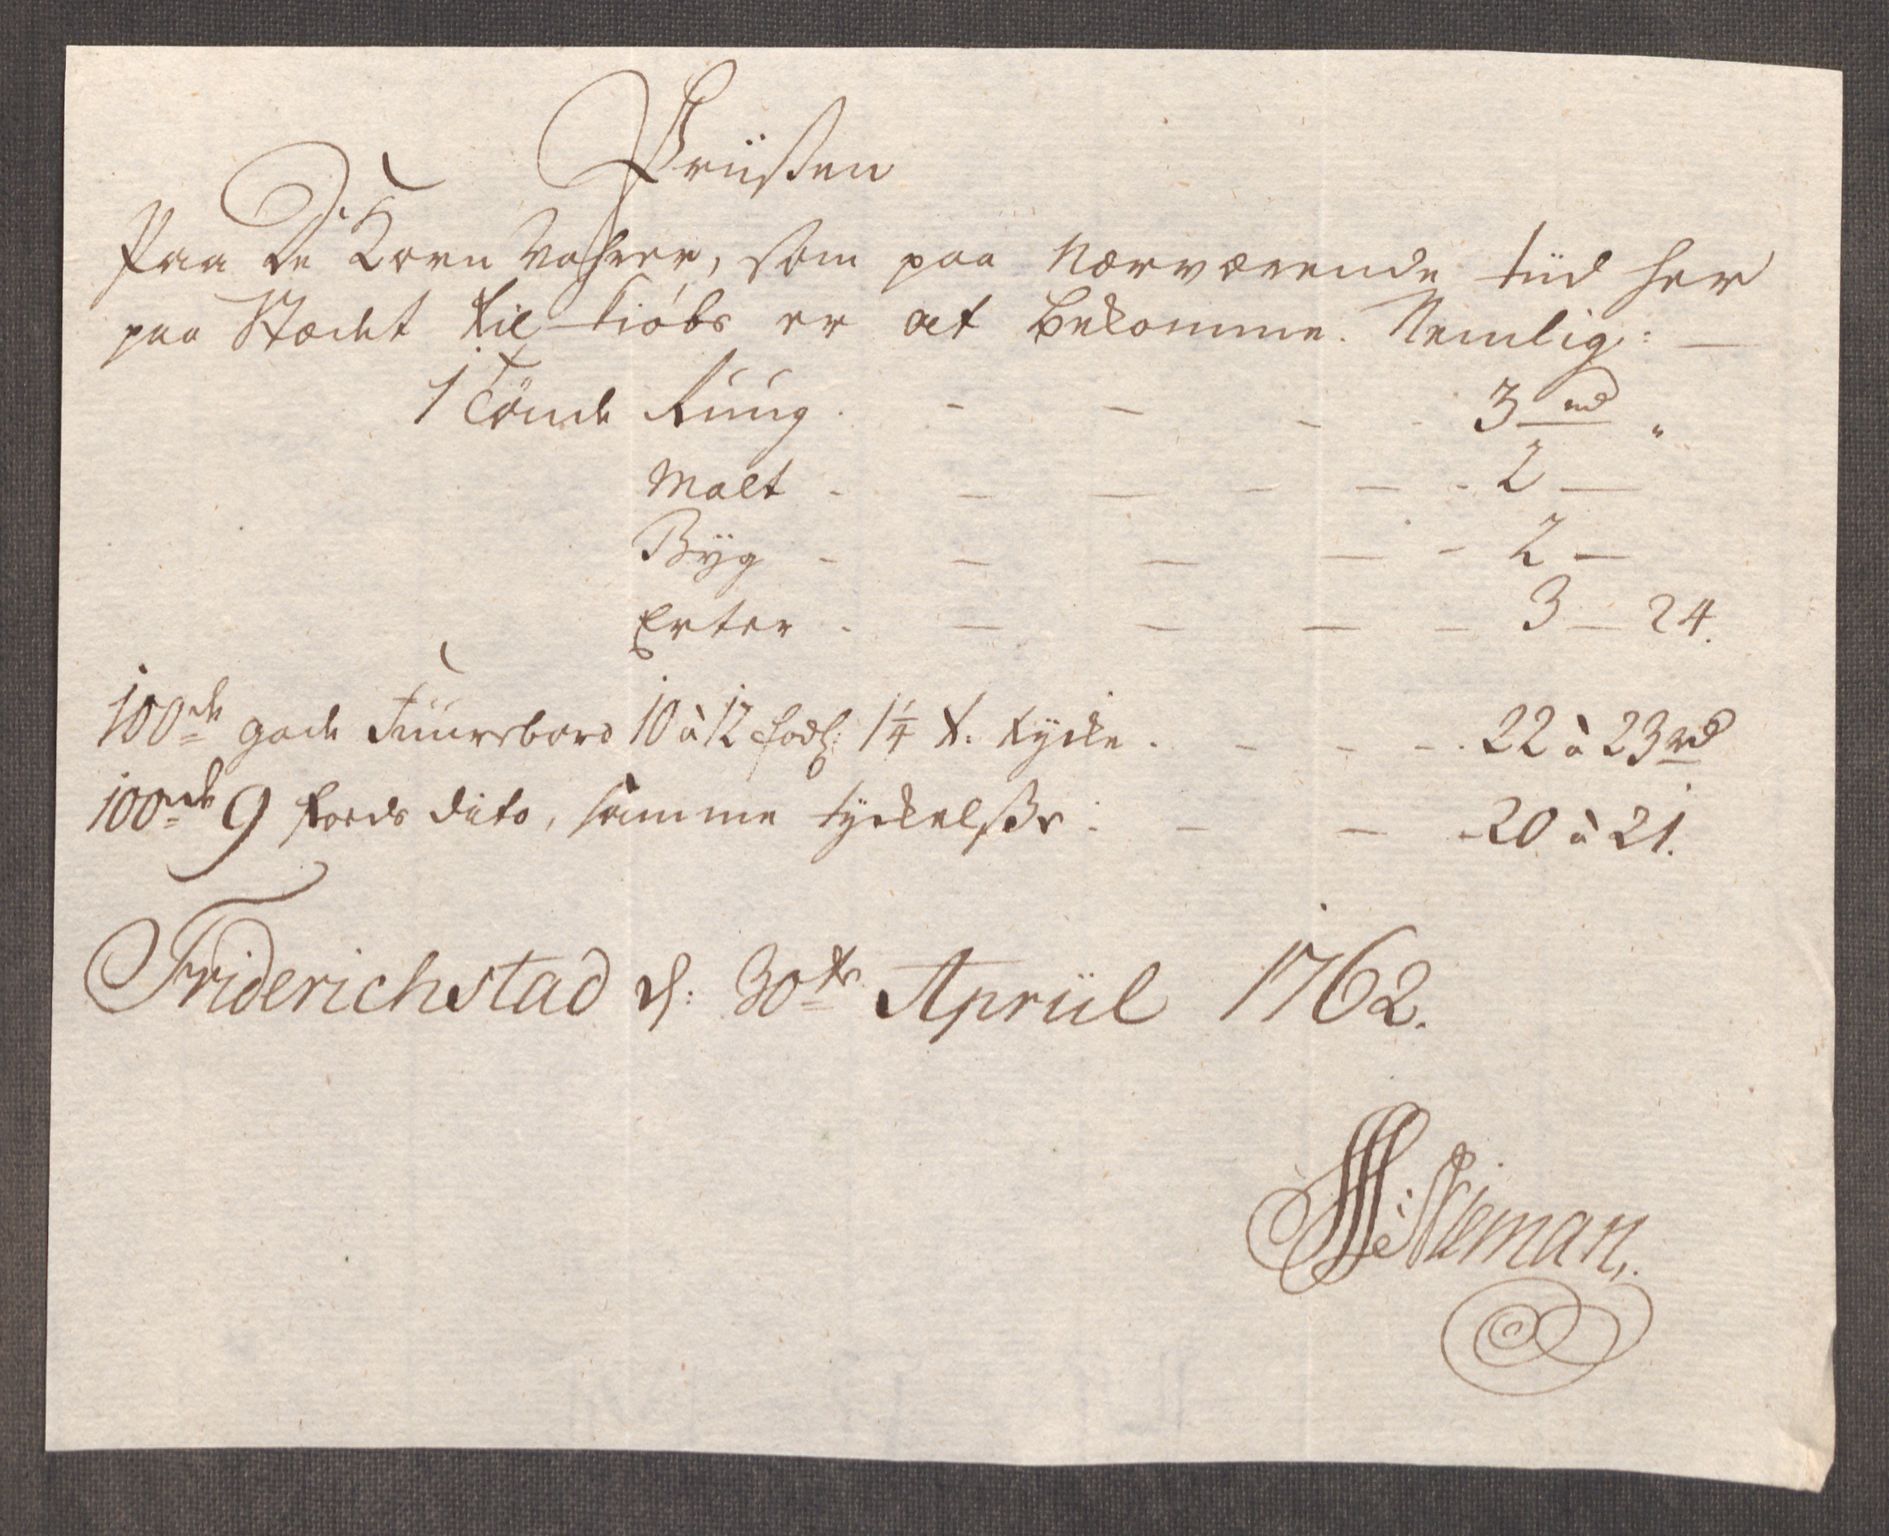 Priisen
Paa De Korn Vahrer, som paa Nærværende tiid her
paa Stædet til kiøbs er at bekomme. Nemlig: —
1 Tønde Ruug. - - - - 3 rd "
Malt - - - - - - 2 —
Byg - - - - - 2 —
Erter - - - - - 3 — 24.
100de gode Fuurebord 10 à 12 fods: 1 1/4 t. tycke. - - - - 22 à 23 rd
100de 9 foeds dito, samme tyckelsse. - - - 20 à 21.
Friderichstad d: 30te Apriil 1762.
Nieman,.